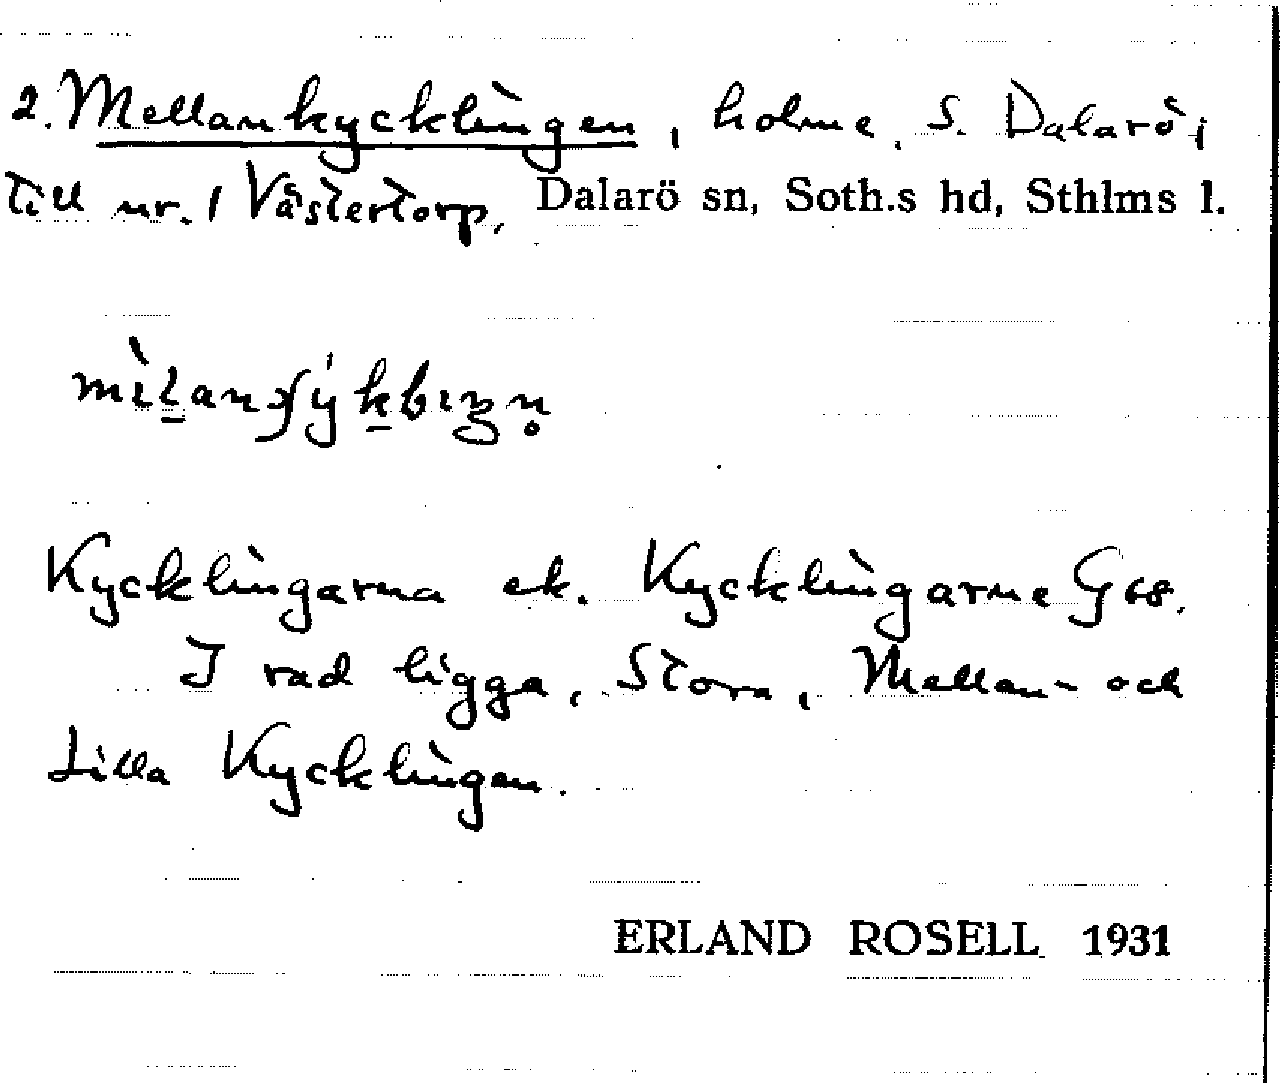 2. Mellankycklingen, holme, S. Dalarö;
till nr. 1 Västertorp, Dalarö sn, Soth.s hd, Sthlms l.
Kycklingarna ek. Kycklingarne G68.
I rad ligga, Stora, Mellan- och
Lilla Kycklingen.
ERLAND ROSELL 1931